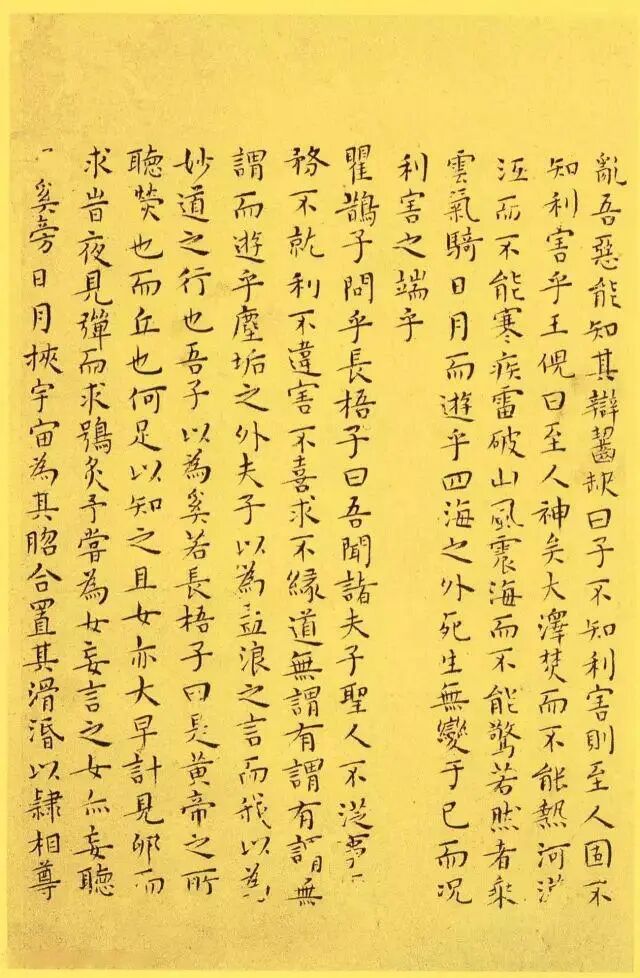 亂吾惡能知其辯齧缺曰子不知利害則至人固不
知利害乎王倪曰至人神矣大澤焚而不能熱河漢
沍而不能寒疾雷破山風震海而不能驚若然者乘
雲氣騎日月而遊乎四海之外死生無變于己而況
利害之端乎
瞿鵲子問乎長梧子曰吾聞諸夫子聖人不從事
務不就利不違害不喜求不緣道無謂有謂有謂無
謂而遊乎塵垢之外夫子以為孟浪之言而我以為
妙道之行也吾子以為奚若長梧子曰是黃帝之所
聽熒也而丘也何足以知之且女亦大早計見卵而
求旹夜見彈而求鴞炙予嘗為女妄言之女亦妄聽
奚旁日月挾宇宙為其脗合置其滑涽以隸相尊